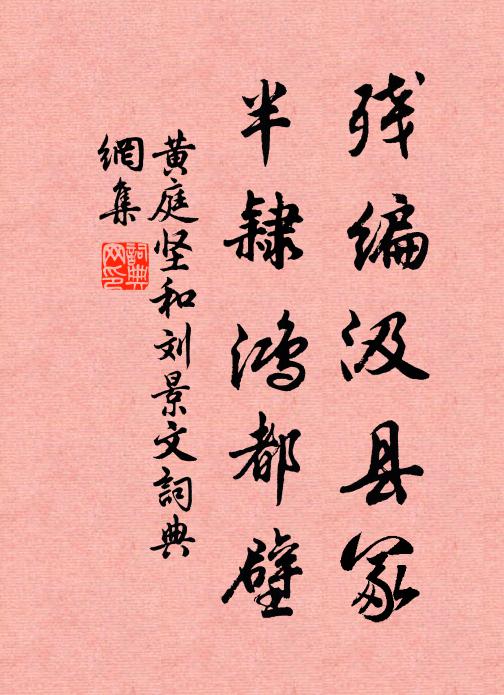 残编汲县冢
半隶鸿都壁
黄庭坚和刘景文詞典
網集
詞典
网印